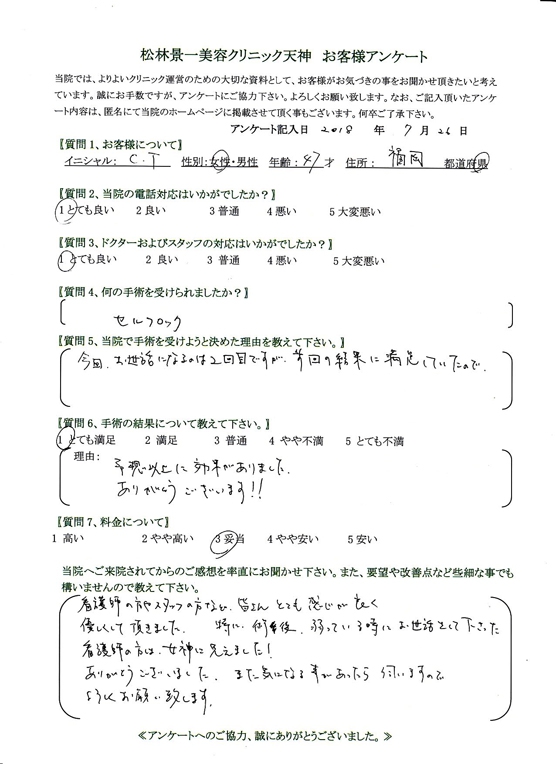 松林景一美容クリニック天神 お客様アンケート
当院では、よりよいクリニック運営のための大切な資料として、お客様がお気づきの事をお聞かせ頂きたいと考え
ています。誠にお手数ですが、アンケートにご協力下さい。よろしくお願い致します。なお、ご記入頂いたアンケ
ート内容は、匿名にて当院のホームページに掲載させて頂く事もございます。何卒ご了承下さい。
アンケート記入日 2018 年 7 月 26 日
〖質問1、お客様について〗
イニシャル: C.T 性別:女性・男性 年齢:47才 住所: 福岡 都道府県
〖質問2、当院の電話対応はいかがでしたか?〗
1とても良い 2良い 3普通 4悪い 5大変悪い
〖質問3、ドクターおよびスタッフの対応はいかがでしたか?〗
1とても良い 2 良い 3 普通 4悪い 5大変悪い
〖質問4、何の手術を受けられましたか?〗
セルフロック
〖質問5、当院で手術を受けようと決めた理由を教えて下さい。〗
今回、お世話になるのは2回目ですが、前回の結果に満足していたので。
〖質問6、手術の結果について教えて下さい。〗
1とても満足 2 満足 3 普通 4 やや不満 5 とても不満
理由:
予想以上に効果がありました。
ありがとうございます!!
〖質問7、料金について〗
1 高い 2やや高い 3妥当 4やや安い 5安い
当院へご来院されてからのご感想を率直にお聞かせ下さい。また、要望や改善点など些細な事でも
構いませんので教えて下さい。
看護師の方やスタッフの方など、皆さん とても感じが良く
優しくして頂きました。 特に、術後、弱っている時にお世話をして下さった
看護師の方は、女神に見えました!
ありがとうございました。 また気になる事があったら 伺いますので
よろしくお願い致します。
≪アンケートへのご協力、誠にありがとうございました。≫